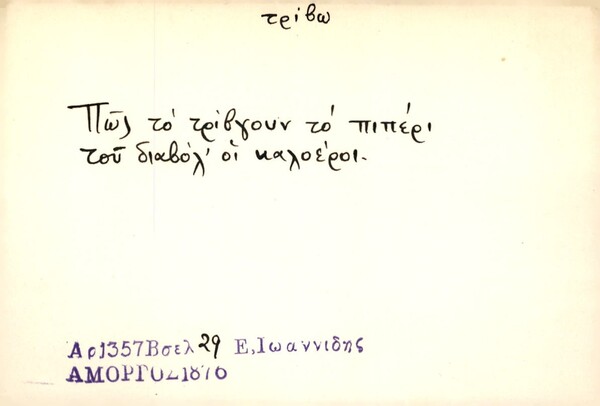 τρίβω
Πῶς τό τρίβγουν τό πιπέρι
τοῦ διαβόλ' οἱ καλοέροι.
Αρ1357Βσελ 29 Ε,Ιωαννιδης
ΑΜΟΡΓΟΣ1876